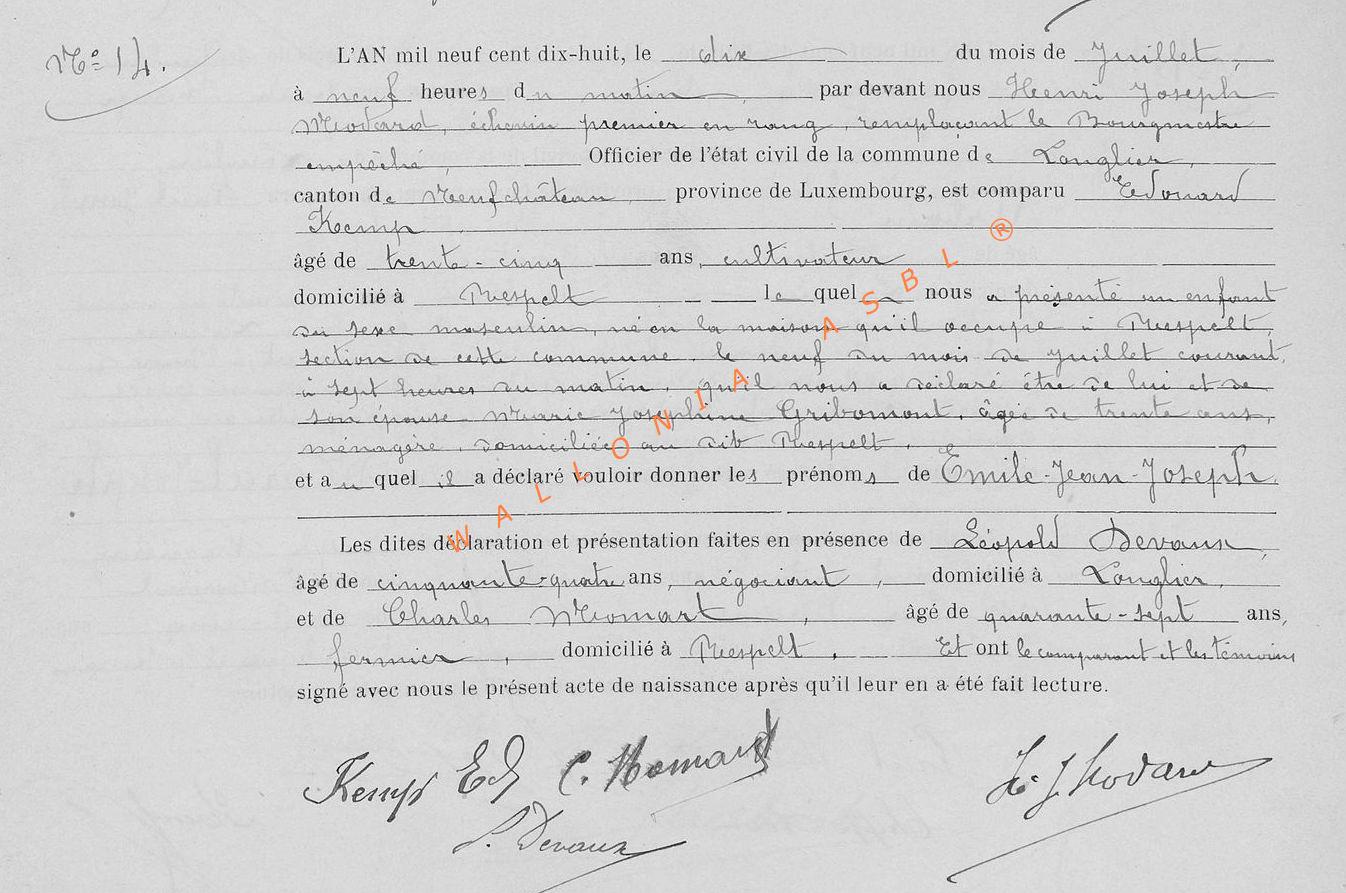 N° 14.
L'AN mil neuf cent dix-huit, le dix du mois de Juillet,
à neuf heures du matin, par devant nous Henri Joseph
Modard, échevin premier en rang, remplaçant le Bourgmestre
empêché, Officier de l'état civil de la commune de Longlier,
canton de Neufchâteau, province de Luxembourg, est comparu Edouard
Kemp
âgé de trente-cinq ans, cultivateur
domicilié à Respelt lequel nous a présenté un enfant
du sexe masculin, né en la maison qu'il occupe à Respelt,
section de cette commune, le neuf du mois de Juillet courant,
à sept heures du matin, qu'il nous a déclaré être de lui et de
son épouse Marie Joséphine Gribomont, âgée de trente ans,
ménagère, domiciliée au dit Respelt,
et auquel il a déclaré vouloir donner les prénoms de Emile-Jean-Joseph.
Les dites déclaration et présentation faites en présence de Léopold Devaux,
âgé de cinquante-quatre ans, négociant, domicilié à Longlier,
et de Charles Momart, âgé de quarante-sept ans,
fermier, domicilié à Respelt. Et ont le comparant et les témoins
signé avec nous le présent acte de naissance après qu'il leur en a été fait lecture.
Kemp Ed C. Momard H. J. Modard
L. Devaux
WALLONIA ASBL ®